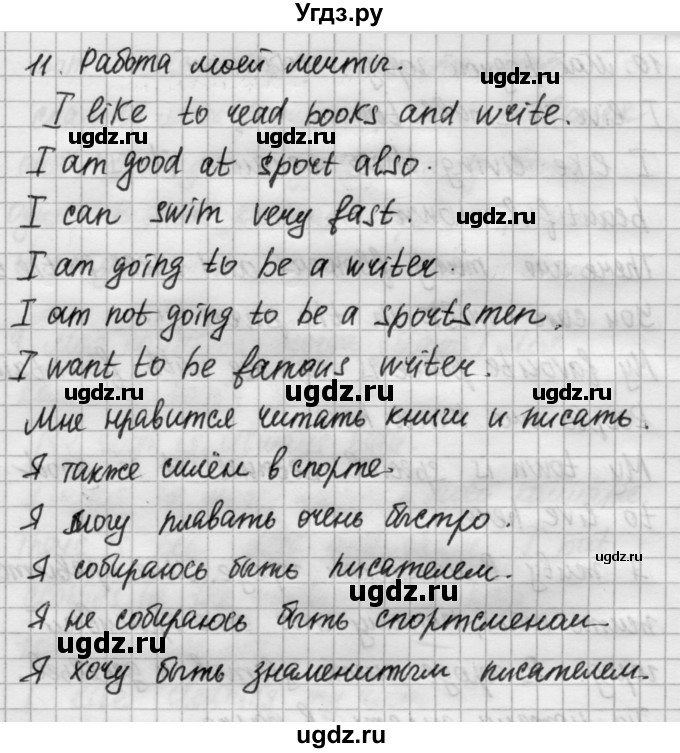 Угдз.ру
11. Работа моей мечты.
ugdz.ru
I like to read books and write.
ugdz.ru ugdz.ru
I am good at sport also.
I can swim very fast.
ugdz.ru
I am going to be a writer.
I am not going to be a sportsmen.
I want to be famous writer.
ugdz.ru ugdz.ru ugdz.ru
Мне нравится читать книги и писать.
Я также силён в спорте.
Я могу плавать очень быстро.
ugdz.ru
Я собираюсь быть писателем.
ugdz.ru
Я не собираюсь быть спортсменом.
ugdz.ru
Я хочу быть знаменитым писателем.
ugdz.ru